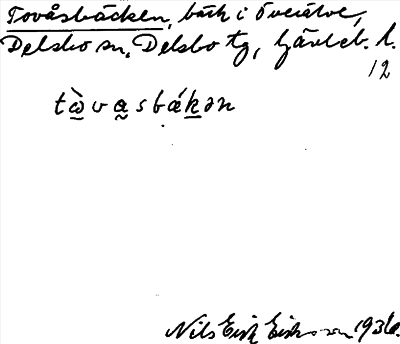 Tovåsbäcken, bäck i Överälve,
Delsbo sn, Delsbo tg, Gävleb. l.
12
tὼvasbákən
Nils Erik Eriksson 1936.